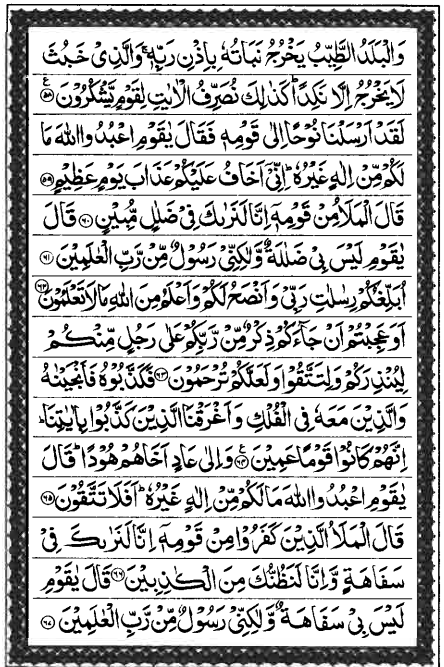 وَالْبَلَدُ الطَّيِّبُ يَخْرُجُ نَبَاتُهٗ بِاِذْنِ رَبِّهٖ ۚ وَالَّذِیْ خَبُثَ
لَا یَخْرُجُ اِلَّا نَكِدًا ؕ كَذٰلِكَ نُصَرِّفُ الْاٰیٰتِ لِقَوْمٍ یَّشْكُرُوْنَ ﴿۵۸﴾ ع
لَقَدْ اَرْسَلْنَا نُوْحًا اِلٰی قَوْمِهٖ فَقَالَ یٰقَوْمِ اعْبُدُوا اللّٰهَ مَا
لَكُمْ مِّنْ اِلٰهٍ غَیْرُهٗ ؕ اِنِّیْۤ اَخَافُ عَلَیْكُمْ عَذَابَ یَوْمٍ عَظِیْمٍ ﴿۵۹﴾
قَالَ الْمَلَاُ مِنْ قَوْمِهٖۤ اِنَّا لَنَرٰىكَ فِیْ ضَلٰلٍ مُّبِیْنٍ ﴿۶۰﴾ قَالَ
یٰقَوْمِ لَیْسَ بِیْ ضَلٰلَةٌ وَّلٰكِنِّیْ رَسُوْلٌ مِّنْ رَّبِّ الْعٰلَمِیْنَ ﴿۶۱﴾
اُبَلِّغُكُمْ رِسٰلٰتِ رَبِّیْ وَاَنْصَحُ لَكُمْ وَاَعْلَمُ مِنَ اللّٰهِ مَا لَا تَعْلَمُوْنَ ﴿۶۲﴾
اَوَعَجِبْتُمْ اَنْ جَآءَكُمْ ذِكْرٌ مِّنْ رَّبِّكُمْ عَلٰی رَجُلٍ مِّنْكُمْ
لِیُنْذِرَكُمْ وَلِتَتَّقُوْا وَلَعَلَّكُمْ تُرْحَمُوْنَ ﴿۶۳﴾ فَكَذَّبُوْهُ فَاَنْجَیْنٰهُ
وَالَّذِیْنَ مَعَهٗ فِی الْفُلْكِ وَاَغْرَقْنَا الَّذِیْنَ كَذَّبُوْا بِاٰیٰتِنَا ؕ
اِنَّهُمْ كَانُوْا قَوْمًا عَمِیْنَ ﴿۶۴﴾ ع وَاِلٰی عَادٍ اَخَاهُمْ هُوْدًا ؕ قَالَ
یٰقَوْمِ اعْبُدُوا اللّٰهَ مَا لَكُمْ مِّنْ اِلٰهٍ غَیْرُهٗ ؕ اَفَلَا تَتَّقُوْنَ ﴿۶۵﴾
قَالَ الْمَلَاُ الَّذِیْنَ كَفَرُوْا مِنْ قَوْمِهٖۤ اِنَّا لَنَرٰىكَ فِیْ
سَفَاهَةٍ وَّاِنَّا لَنَظُنُّكَ مِنَ الْكٰذِبِیْنَ ﴿۶۶﴾ قَالَ یٰقَوْمِ
لَیْسَ بِیْ سَفَاهَةٌ وَّلٰكِنِّیْ رَسُوْلٌ مِّنْ رَّبِّ الْعٰلَمِیْنَ ﴿۶۷﴾